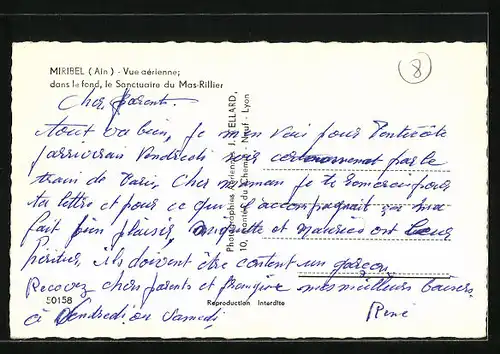 MIRIBEL (Ain) - Vue aérienne;
dans le fond, le Sanctuaire du Mas-Rillier
8
Cher parents.
Tout va bien, je m'en vai pour Pentecôte
j'arriverai Vendredi soir par le
train de Paris, Cher maman je te remerci pour
ta lettre et pour ce qui l'accompagnait, ça ma
fait bien plaisir, et Maurice ont
ils doivent être content un garçon
Recevez chers parents et mes meilleurs baisers
à Vendredi ou Samedi
René
50158
Reproduction Interdite
Photographies Aériennes J. CELLARD,
10, Montée du Chemin - Neuf - Lyon